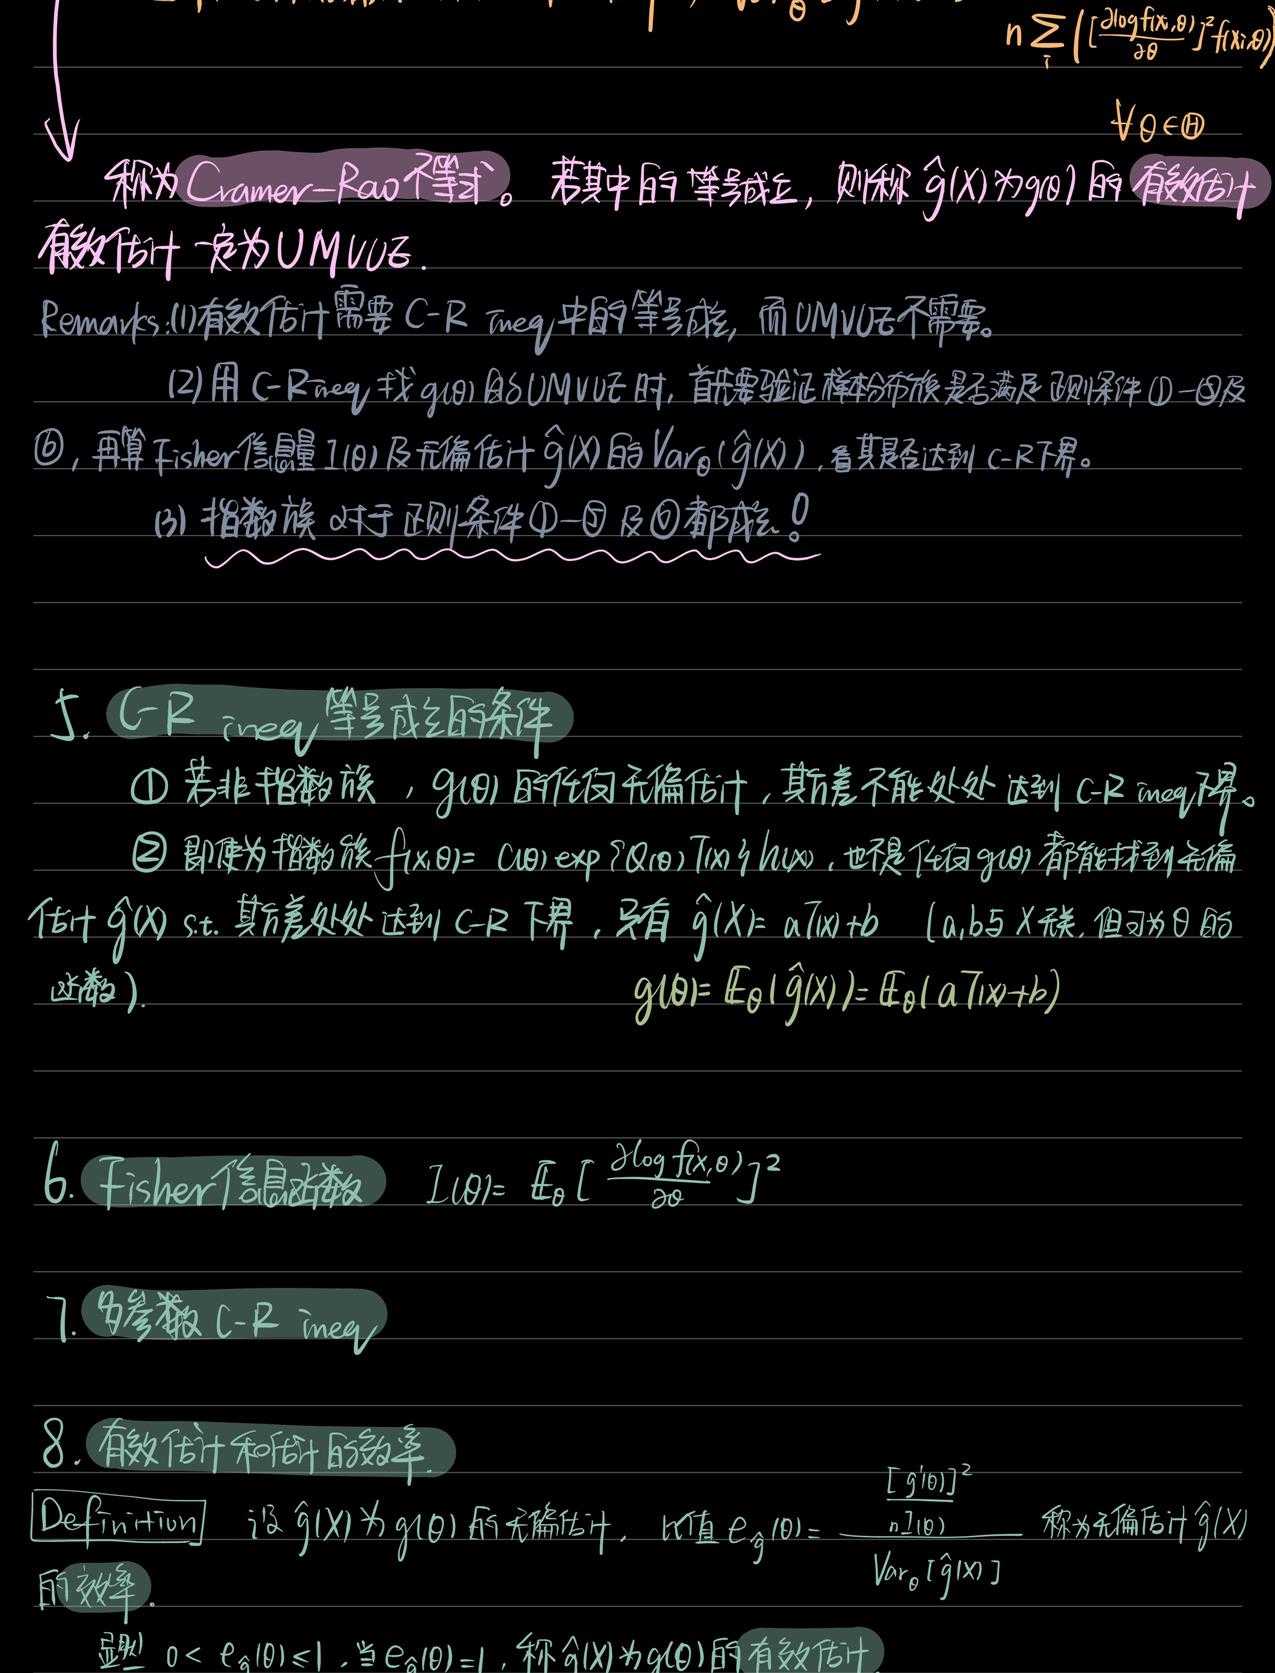 n∑_i([∂log f(x_i,θ)/∂θ]² f(x_i,θ))
∀θ∈Θ
称为 Cramer-Rao 不等式。若其中的等号成立，则称 ĝ(X)为g(θ)的有效估计
有效估计一定为UMVUE.
Remarks:(1)有效估计需要 C-R ineq中的等号成立，而UMVUE不需要。
(2)用 C-R ineq 找 g(θ)的UMVUE时，首先要验证样本分布族是否满足正则条件①-⑤及
⑥，再算Fisher信息量I(θ)及无偏估计 ĝ(X)的 Var_θ(ĝ(X))，看其是否达到 C-R下界。
(3) 指数族对于正则条件①-⑤及⑥都成立！
5. C-R ineq 等号成立的条件
① 若非指数族，g(θ)的任何无偏估计，其方差不能处处达到 C-R ineq下界。
② 即使为指数族 f(x,θ)= C(θ)exp{Q(θ)T(x)}h(x)，也不是任何g(θ)都能找到无偏
估计 ĝ(X) s.t. 其方差处处达到 C-R 下界，只有 ĝ(X)= aT(x)+b (a,b与X无关，但可为θ的
函数).
g(θ)= 𝔼_θ(ĝ(X))= 𝔼_θ(aT(x)+b)
6. Fisher信息函数 I(θ)= 𝔼_θ[∂log f(x,θ)/∂θ]²
7. 多参数 C-R ineq
8. 有效估计和估计的效率.
Definition 设 ĝ(X)为g(θ)的无偏估计，比值 e_ĝ(θ)= ([g'(θ)]²/nI(θ))/Var_θ[ĝ(X)] 称为无偏估计 ĝ(X)
的效率.
显然 0< e_ĝ(θ)≤1，当e_ĝ(θ)=1，称 ĝ(X)为g(θ)的有效估计